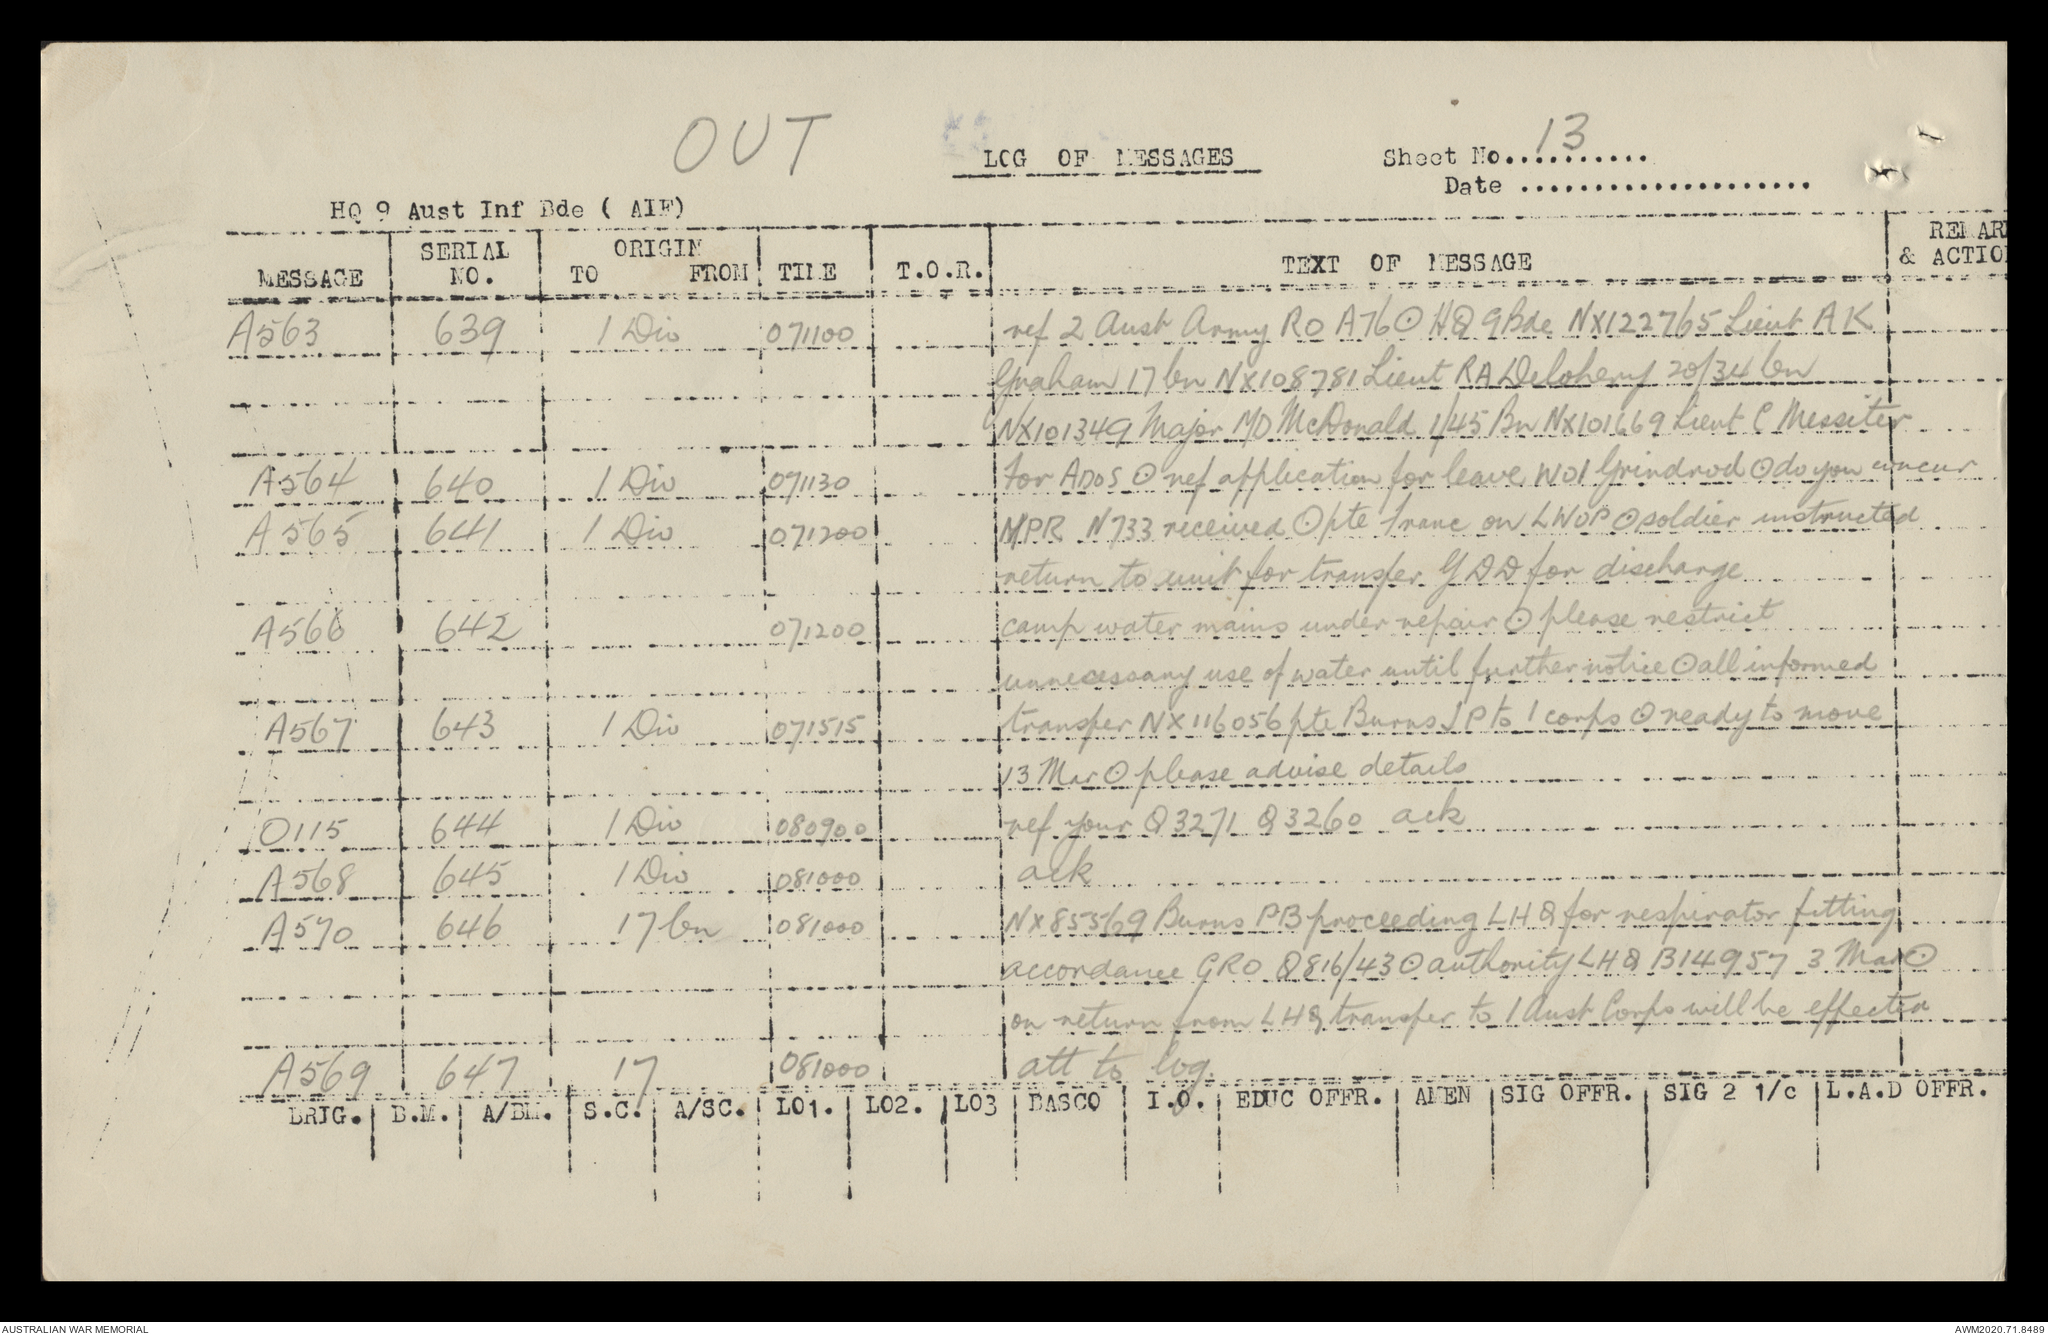 OUT
LOG OF MESSAGES
Sheet No. 13
Date ....................
HQ 9 Aust Inf Bde ( AIF)
MESSAGE SERIAL NO. ORIGIN TO FROM TIME T.O.R. TEXT OF MESSAGE REMAR & ACTIO
A563 639 1 Div 071100 ref 2 Aust Army RO A76 ⊙ HQ 9 Bde NX122765 Lieut A K
Graham 17 bn NX108781 Lieut RA Delohery 20/34 bn
NX101349 Major MD McDonald 1/45 Bn NX101669 Lieut C Messiter
A564 640 1 Div 071130 for ADOS ⊙ ref application for leave WO1 Grindrod ⊙ do you concur
A565 641 1 Div 071200 MPR N733 received ⊙ pte on LWOP ⊙ soldier instructed
return to unit for transfer GDD for discharge
A566 642 071200 camp water mains under repair ⊙ please restrict
unnecessary use of water until further notice ⊙ all informed
A567 643 1 Div 071515 transfer NX116056 pte Burns J P to 1 corps ⊙ ready to move
13 Mar ⊙ please advise details
O115 644 1 Div 080900 ref your Q3271 Q3260 ack
A568 645 1 Div 081000 ack
A570 646 17 bn 081000 NX85569 Burns PB proceeding LHQ for respirator fitting
accordance GRO Q816/43 ⊙ authority LHQ B14957 3 Mar ⊙
on return from LHQ transfer to 1 Aust Corps will be effected
A569 647 17 081000 att to log.
BRIG. B.M. A/BM. S.C. A/SC. LO1. LO2. LO3 BASCO I.O. EDUC OFFR. AMEN SIG OFFR. SIG 2 1/c L.A.D OFFR.
AUSTRALIAN WAR MEMORIAL
AWM2020.71.8489